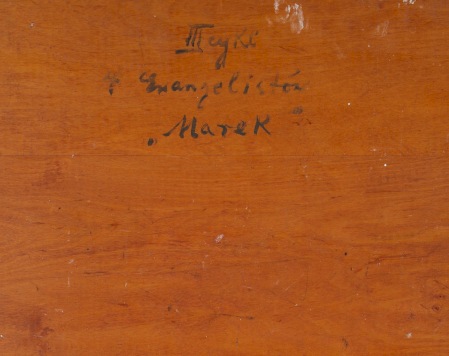 III cykl
4 Ewangelistów
"Marek"